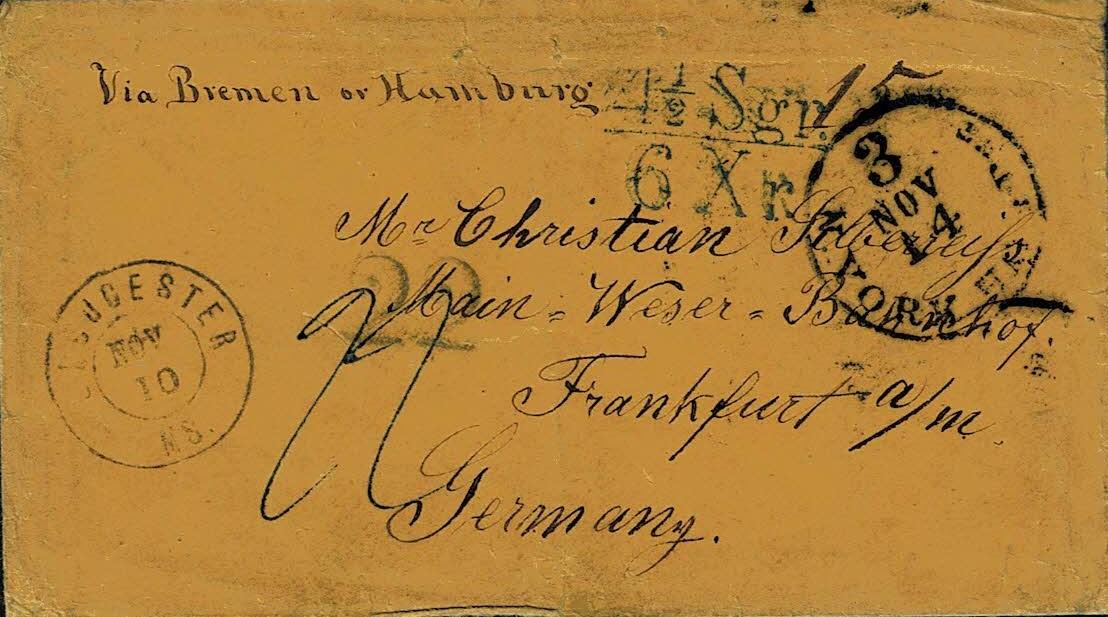 Via Bremen or Hamburg
4½ Sgr.
6 Xr
15
3
NOV
14
YORK
Mr Christian
22
Main = Weser = Bahnhof.
Frankfurt a/m.
Germany.
GLOUCESTER
NOV
10
MS.